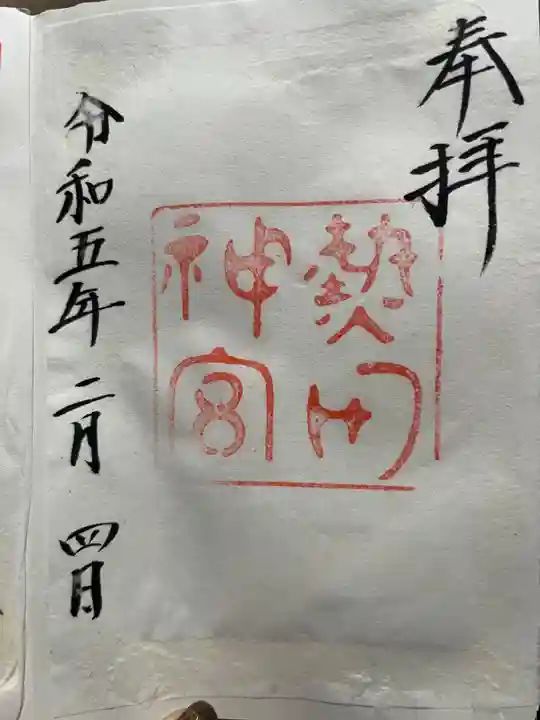 奉拝
熱田
神宮
令和五年二月四日